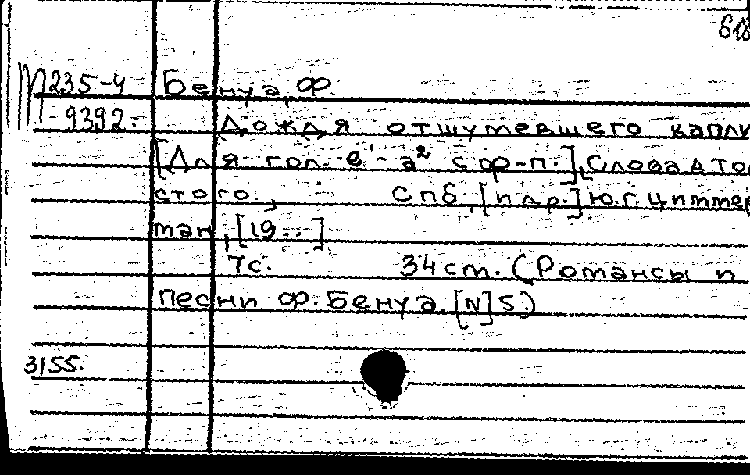 618
М235-4 Бенуа, Ф.
-9392. Дождя отшумевшего капли
[Для гол. e¹-a² с ф-п.], Слова А. То
стого. Спб, [и др.] Ю. Г. Циммер
ман, [19..]
7с. 34 cm. (Романсы и
песни Ф. Бенуа. [N] 5)
3155.